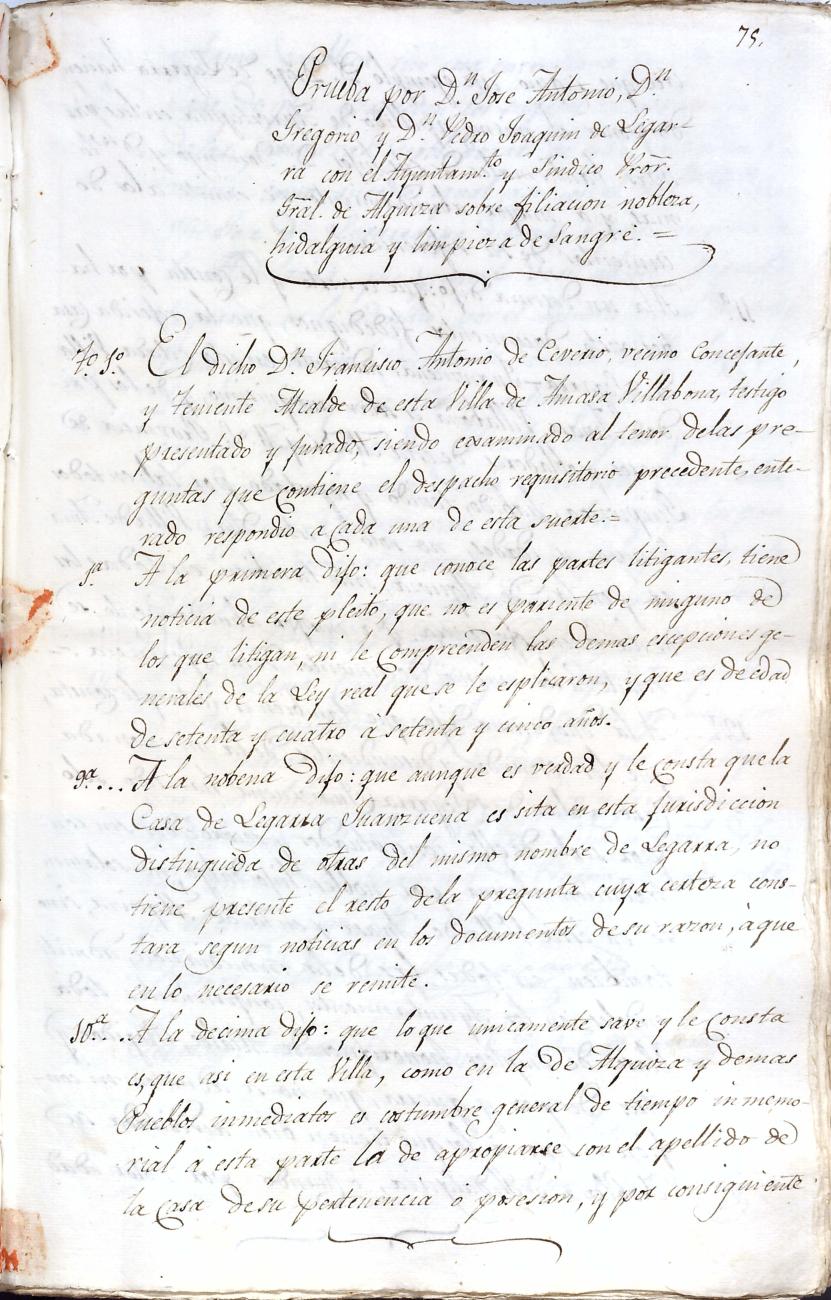 75.
Prueba por D.n Jose Antonio, D.n
Gregorio y D.n Pedro Joaquin de Legar-
ra con el Ayuntam.to y Sindico Pror.
Gral. de Alquiza sobre filiacion nobleza,
hidalguia y limpieza de Sangre. =
t.o 1.o El dicho D.n Francisco Antonio de Ceverio, vecino Concejante,
y Teniente Alcalde de esta Villa de Amasa Villabona, testigo
presentado y jurado, siendo examinado al tenor delas pre-
guntas que Contiene el despacho requisitorio precedente, ente-
rado respondio á Cada una de esta suerte. =
1.a A la primera Dijo: que conoce las partes litigantes, tiene
noticia de este pleito, que no es pariente de ninguno de
los que litigan, ni le Compreenden las demas escepciones ge-
nerales de la Ley real que se le esplicaron, y que es de edad
de setenta y cuatro á setenta y cinco años.
9.a... A la novena Dijo: que aunque es verdad y le Consta que la
Casa de Legarra Juanzuena es sita en esta Jurisdiccion
distinguida de otras del mismo nombre de Legarra, no
tiene presente el resto dela pregunta cuya certeza cons-
tara segun noticias en los documentos de su razon, á que
en lo necesario se remite.
10.a.. A la decima dijo: que lo que unicamente save y le Consta
es, que asi en esta Villa, como en la de Alquiza y demas
Pueblos inmediatos es costumbre general de tiempo inmemo-
rial á esta parte la de apropiarse con el apellido de
la Casa de su pertenencia ó posesion, y por consiguiente